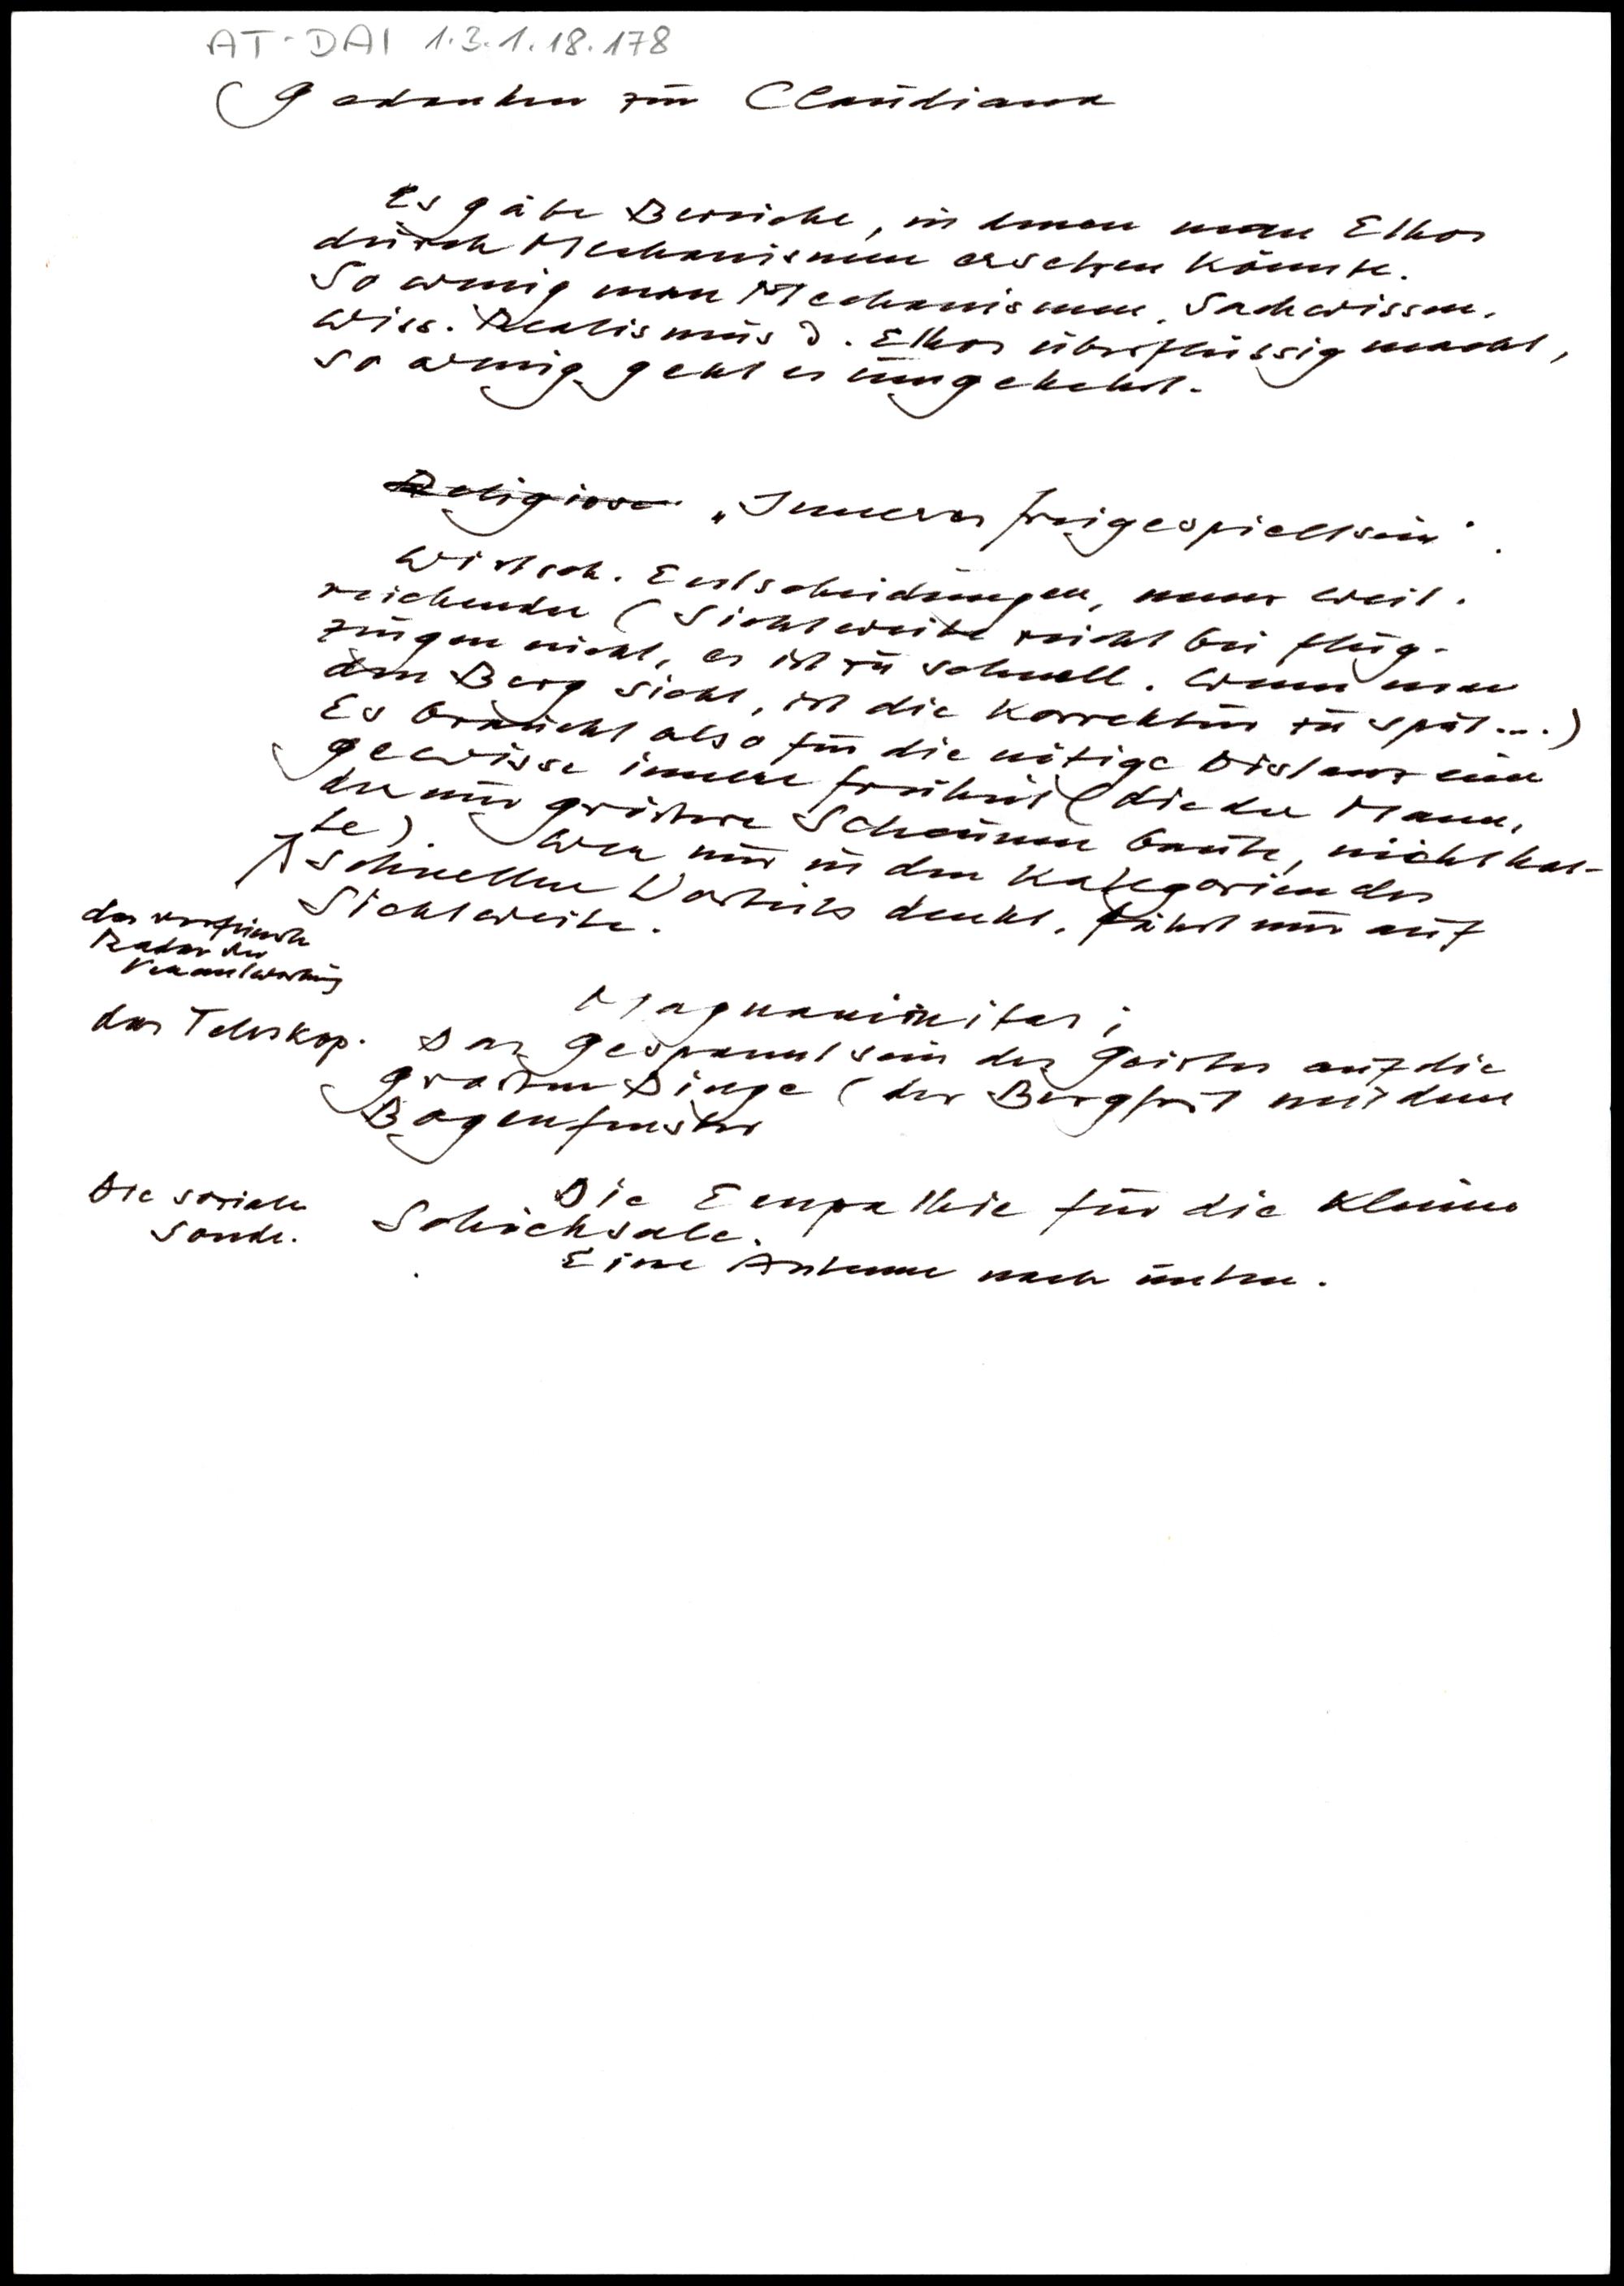 AT-DAI 1.3.1.18.178
Gedanken zur Claudiana
Es gäbe Bereiche, in denen man Ethos
durch Mechanismen ersetzen könnte.
So wenig man Mechanismen, Sachwissen,
wiss. Realismus d. Ethos überflüssig macht,
so wenig geht es umgekehrt.
Religiose „Inneres Freigespieltsein".
Wirtsch. Entscheidungen, immer weit-
reichender (Sichtweite reicht bei Flug-
zeugen nicht, es ist zu schnell. Wenn man
den Berg sieht, ist die Korrektur zu spät....)
Es braucht also für die nötige Distanz eine
gewisse innere Freiheit (die der Mann,
der nur größere Scheunen baute, nicht hat-
te). Wer nur in den Kategorien des
schnellen Vorteils denkt, fährt nur auf
Sichtweite.
das verfeinerte
Radar der
Verantwortung
Magnanimitas;
das Teleskop. Das Gespanntsein des Geistes auf die
großen Dinge (der Bergfrit mit dem
Bogenfenster
Die soziale Die Empathie für die kleinen
Sonde. Schicksale.
Eine Antenne nach unten.